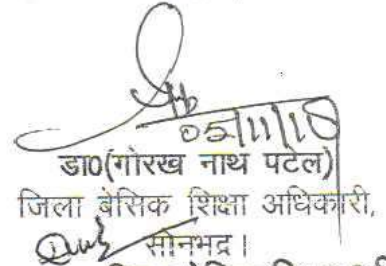 05/11/18
डा0(गोरख नाथ पटेल)
जिला बेसिक शिक्षा अधिकारी,
सोनभद्र।